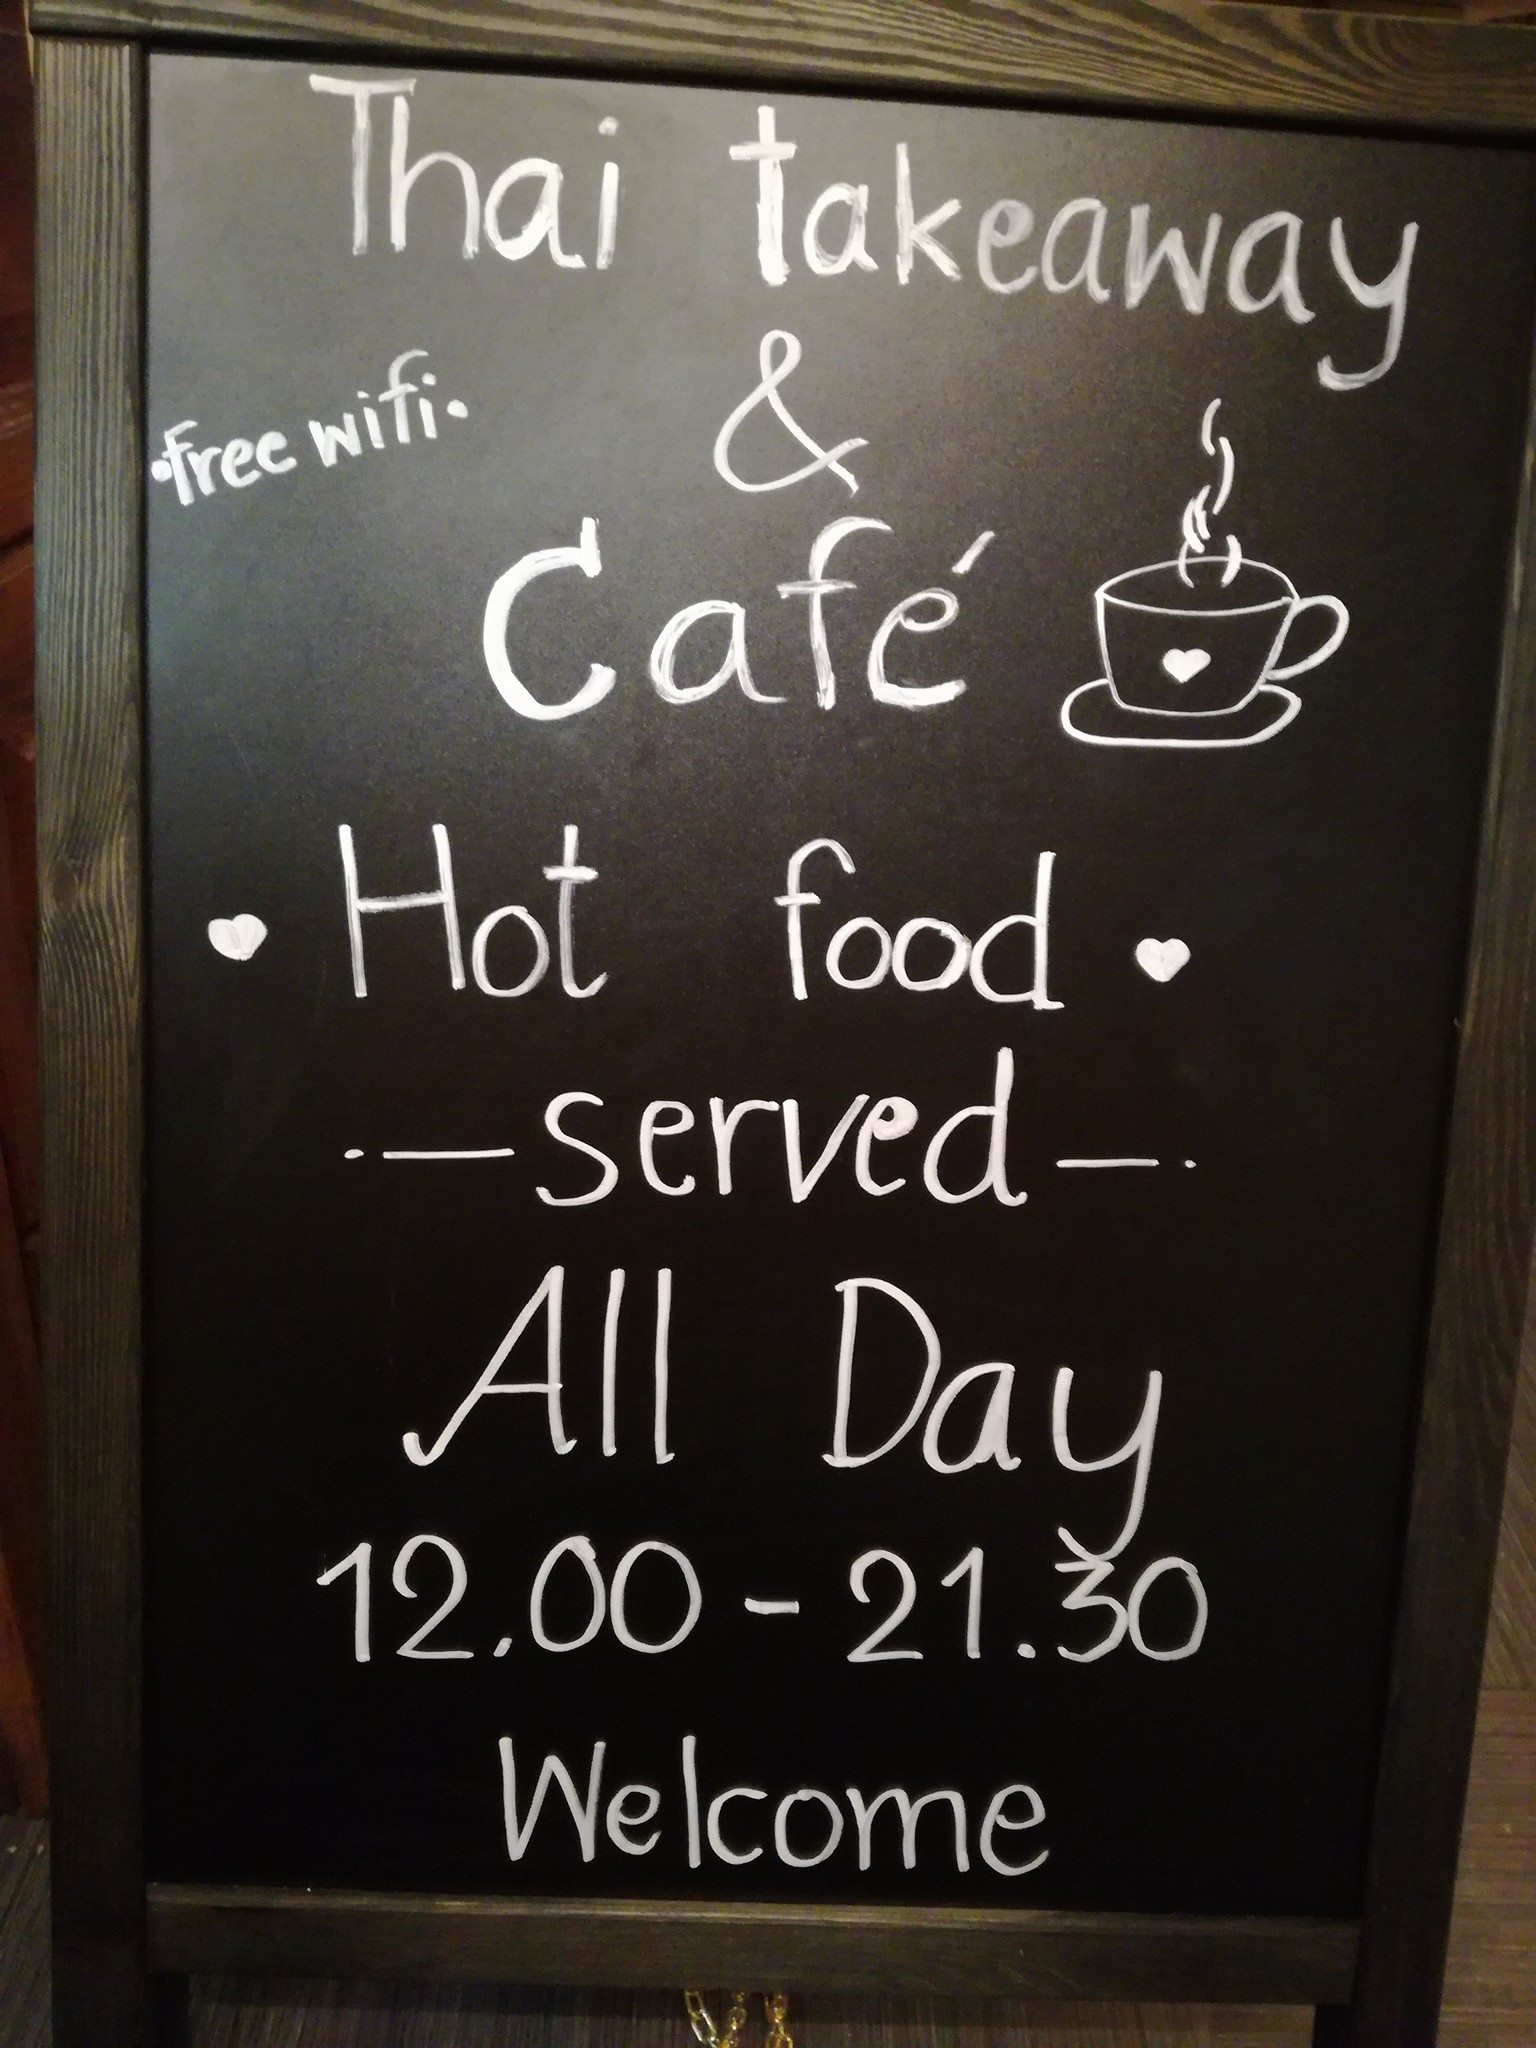 Thai takeaway
&
•free wifi•
Café
• Hot food •
·— served —·
All Day
12.00 - 21.30
Welcome